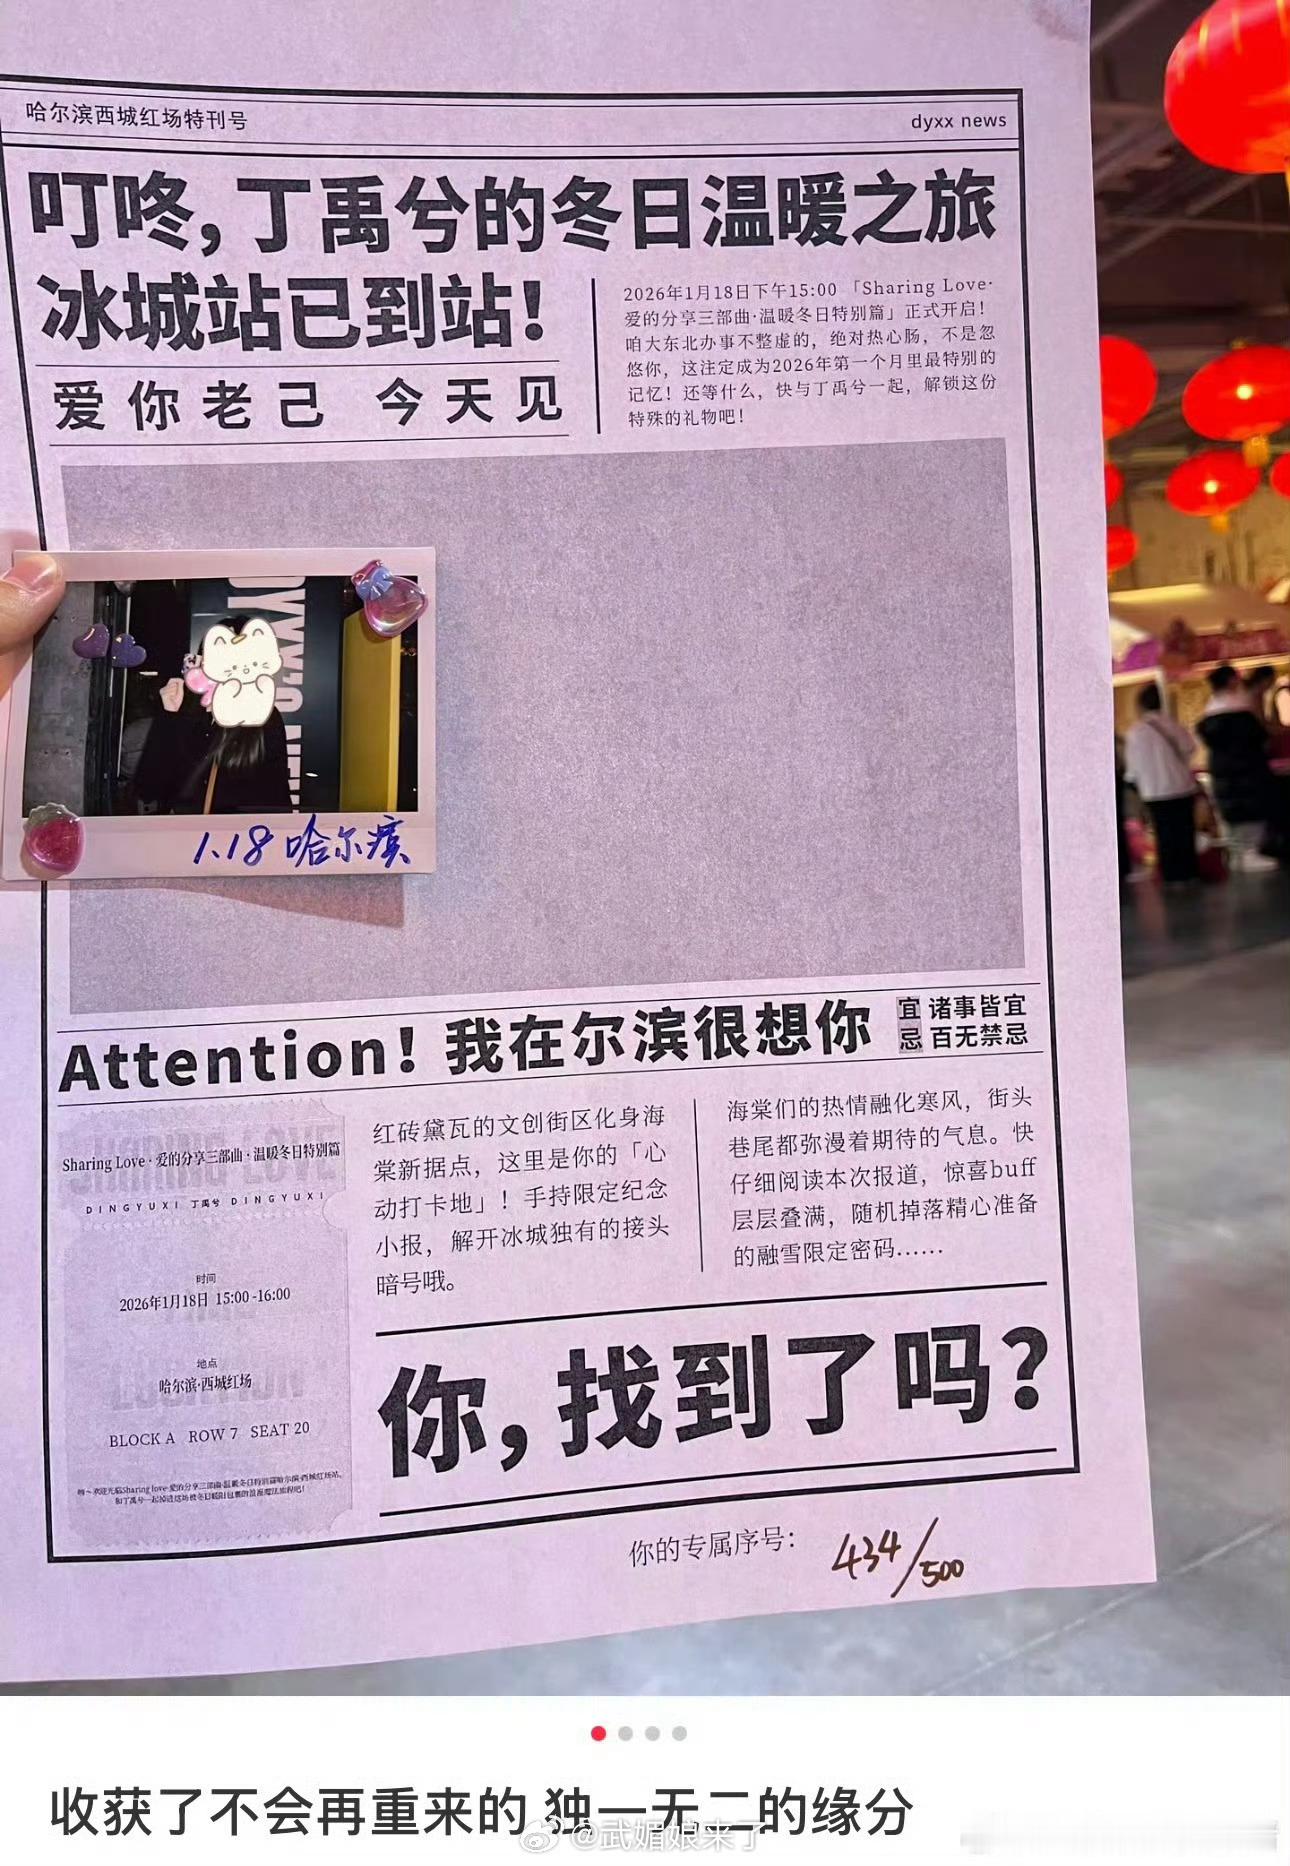 哈尔滨西城红场特刊号
dyxx news
叮咚，丁禹兮的冬日温暖之旅
冰城站已到站！
爱你老己 今天见
2026年1月18日下午15:00「Sharing Love·
爱的分享三部曲·温暖冬日特别篇」正式开启！
咱大东北办事不整虚的，绝对热心肠，不是忽
悠你，这注定成为2026年第一个月里最特别的
记忆！还等什么，快与丁禹兮一起，解锁这份
特殊的礼物吧！
1.18 哈尔滨
Attention！我在尔滨很想你
宜 诸事皆宜
忌 百无禁忌
Sharing Love·爱的分享三部曲·温暖冬日特别篇
DINGYUXI 丁禹兮 DINGYUXI
时间
2026年1月18日 15:00-16:00
地点
哈尔滨·西城红场
BLOCK A ROW 7 SEAT 20
红砖黛瓦的文创街区化身海
棠新据点，这里是你的「心
动打卡地」！手持限定纪念
小报，解开冰城独有的接头
暗号哦。
海棠们的热情融化寒风，街头
巷尾都弥漫着期待的气息。快
仔细阅读本次报道，惊喜buff
层层叠满，随机掉落精心准备
的融雪限定密码……
你，找到了吗？
你的专属序号：
434/500
收获了不会再重来的 独一无二的缘分
@武媚娘来了